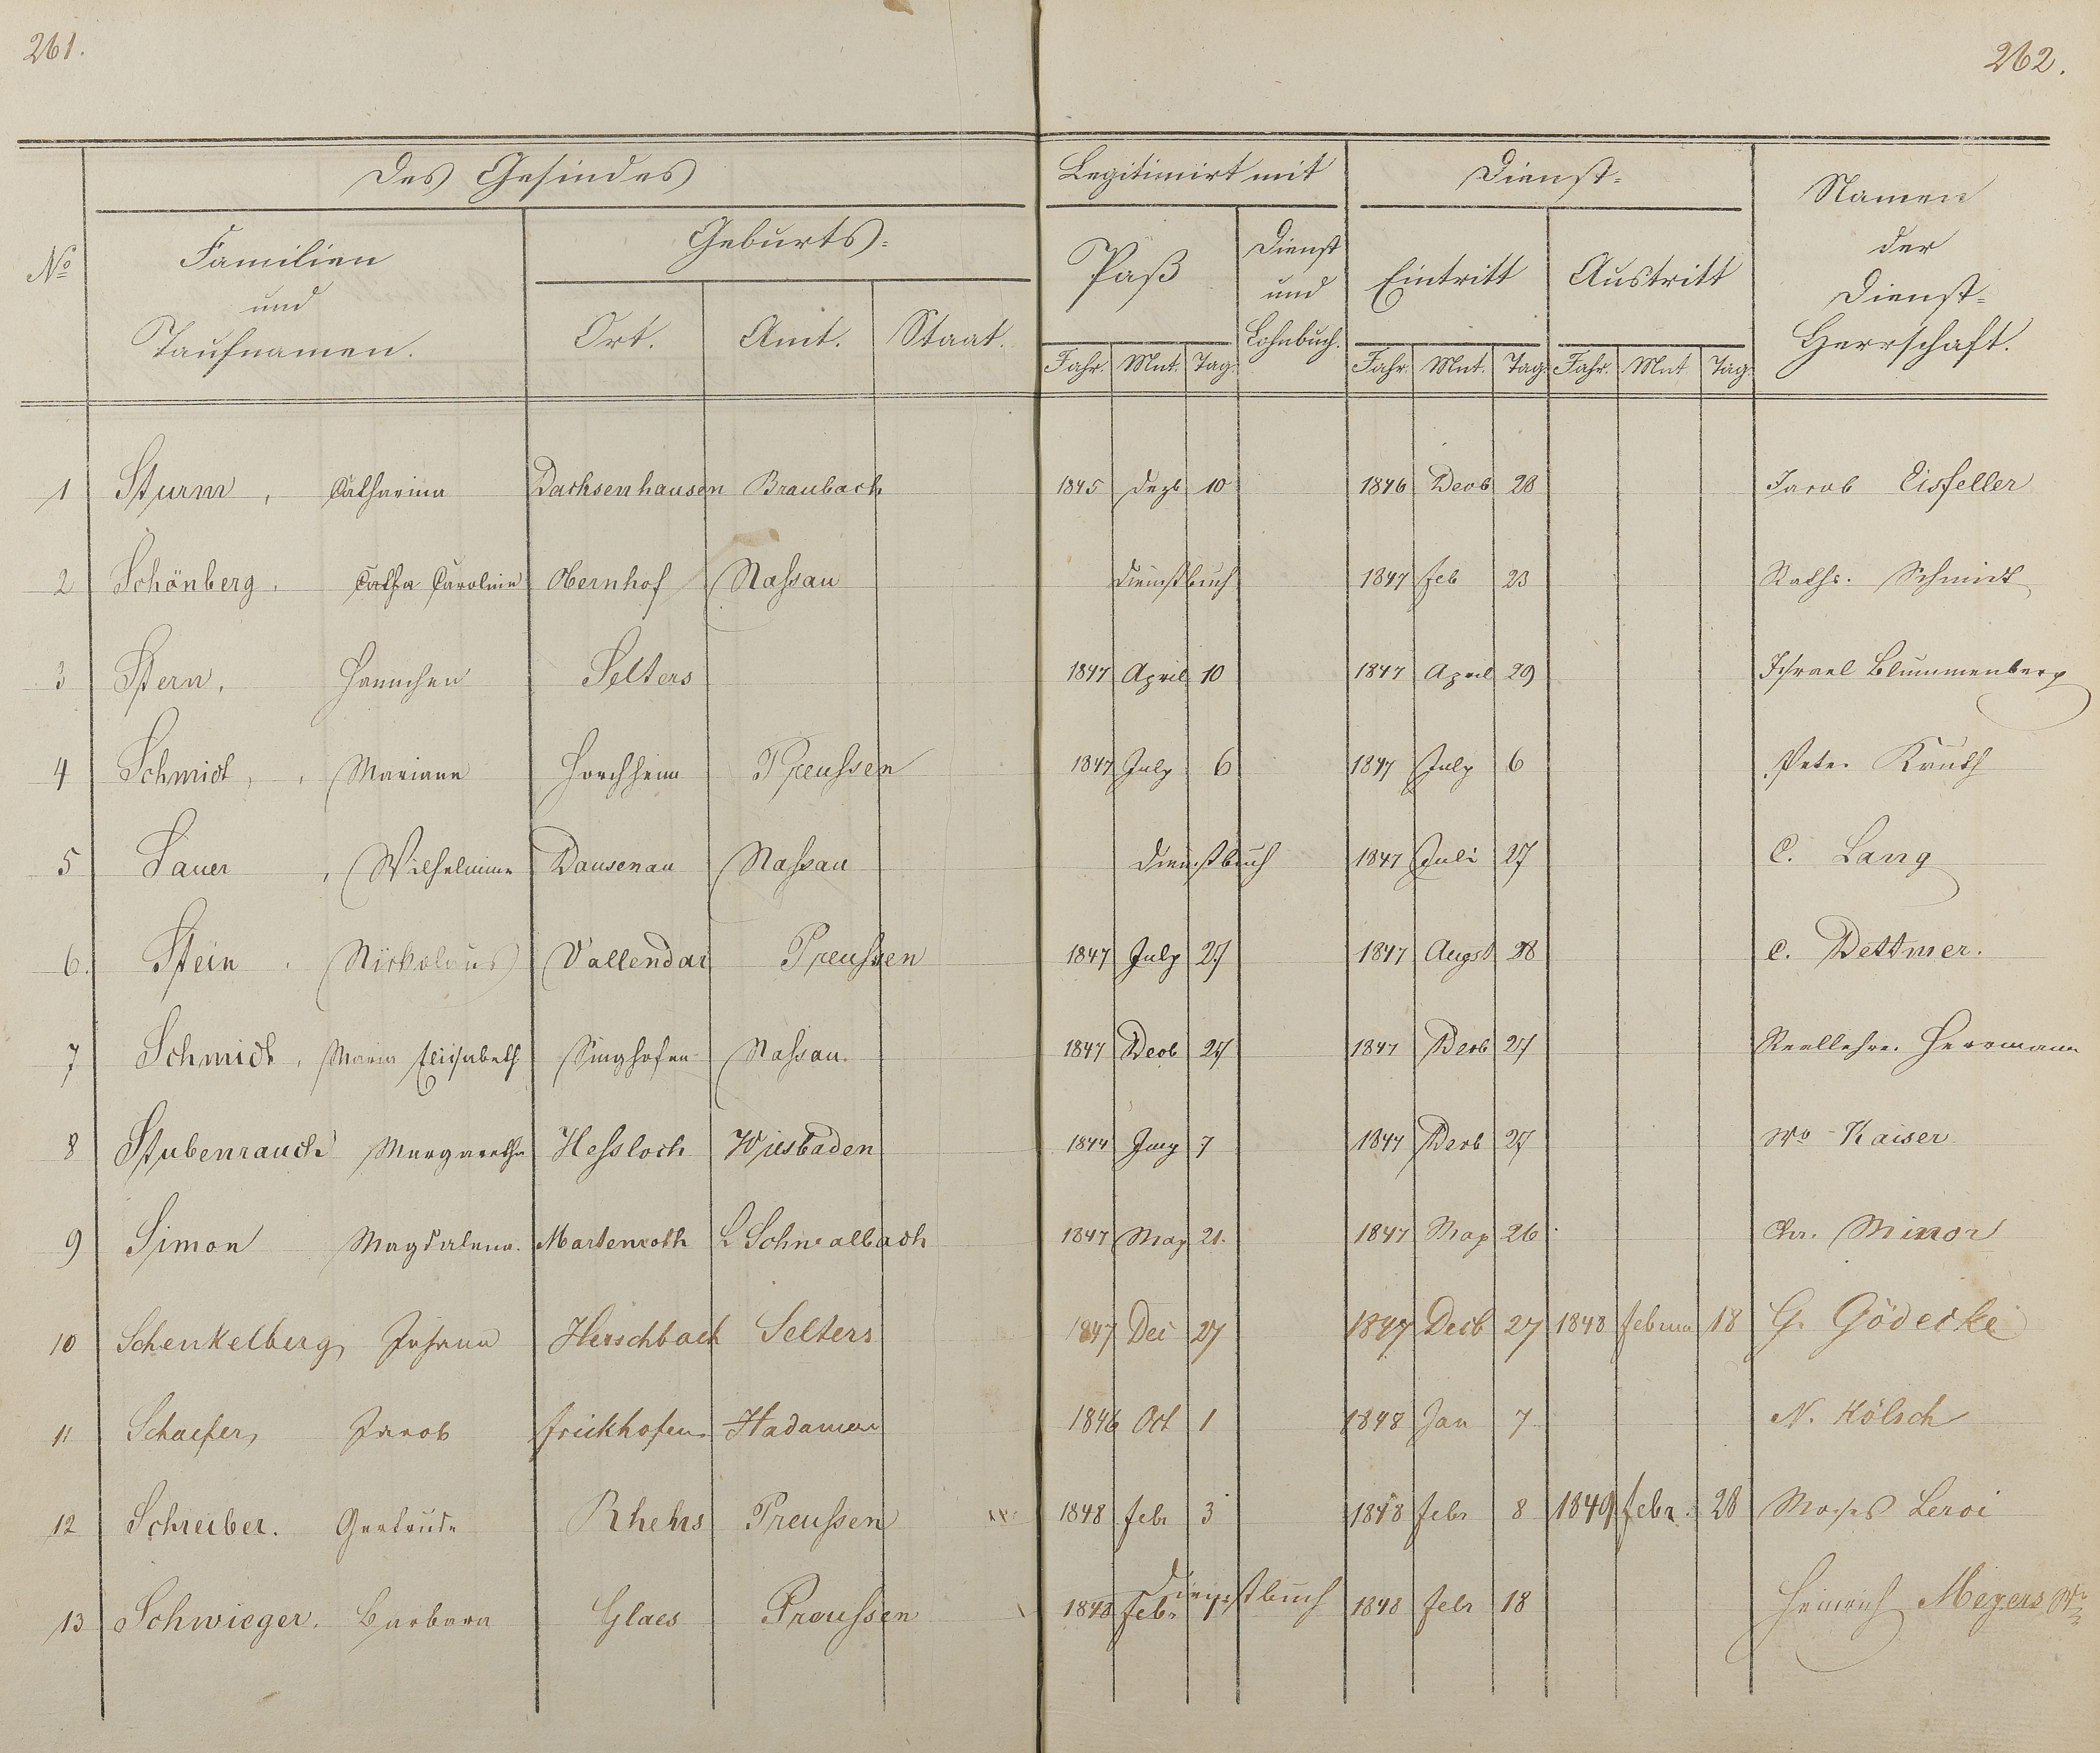 261.
262.
Des Gesindes
Legitimirt mit
Dienst-
Namen
der
Dienst-
Herrschaft.
No
Familien
und
Taufnamen.
Geburts-
Ort. Amt. Staat.
Paß
Dienst
und
Lohnbuch.
Eintritt
Austritt
Jahr. Mnt. Tag. Jahr. Mnt. Tag. Jahr. Mnt. Tag.
1 Sturm, Catharina Dachsenhausen Braubach 1845 Dezb 10 1846 Decb 28 Jacob Eisfeller
2 Schönberg. Catha Caroline Obernhof Naßau Dienstbuch 1847 feb 23 Raths. Schmidt
3 Stern, Hannchen Selters 1847 April 10 1847 April 29 Israel Blummenberg
4 Schmidt, Mariane Horchheim Preußen 1847 July 6 1847 July 6 Peter Knuth
5 Sauer, Wilhelmine Dausenau Naßau Dienstbuch 1847 Juli 27 C. Lang
6. Stein. Nickolaus Vallendar Preußen 1847 July 27 1847 Augst 28 C. Dettmer.
7 Schmidt, Maria Elisabeth Singhofen Naßau. 1847 Decb 27 1847 Decb 27 Reallehrer Herrmann
8 Stubenrauch Margaretha Heßloch Wiesbaden 1844 7 1847 Decb 27 Wo Kaiser
9 Simon Magdalena. Martenroth L Schwalbach 1847 May 21. 1847 May 26 Chr. Minor
10 Schenkelberg, Johann Herschbach Selters 1847 Dec 27 1847 Decb 27 1848 18 G. Gödecke
11 Schaefer, Jacob frickhofen Hadamar 1846 Oct 1 1848 Jan 7 N. Kölsch
12 Schreiber. Gertrude Rhehrs Preußen 1848 febr 3 1848 febr 8 1849 febr. 28 Moses Leroi
13 Schwieger. Barbara Glaes Preußen 1848 Febr 1 Dienstbuch 1848 febr 18 Heinrich Meyers Wo